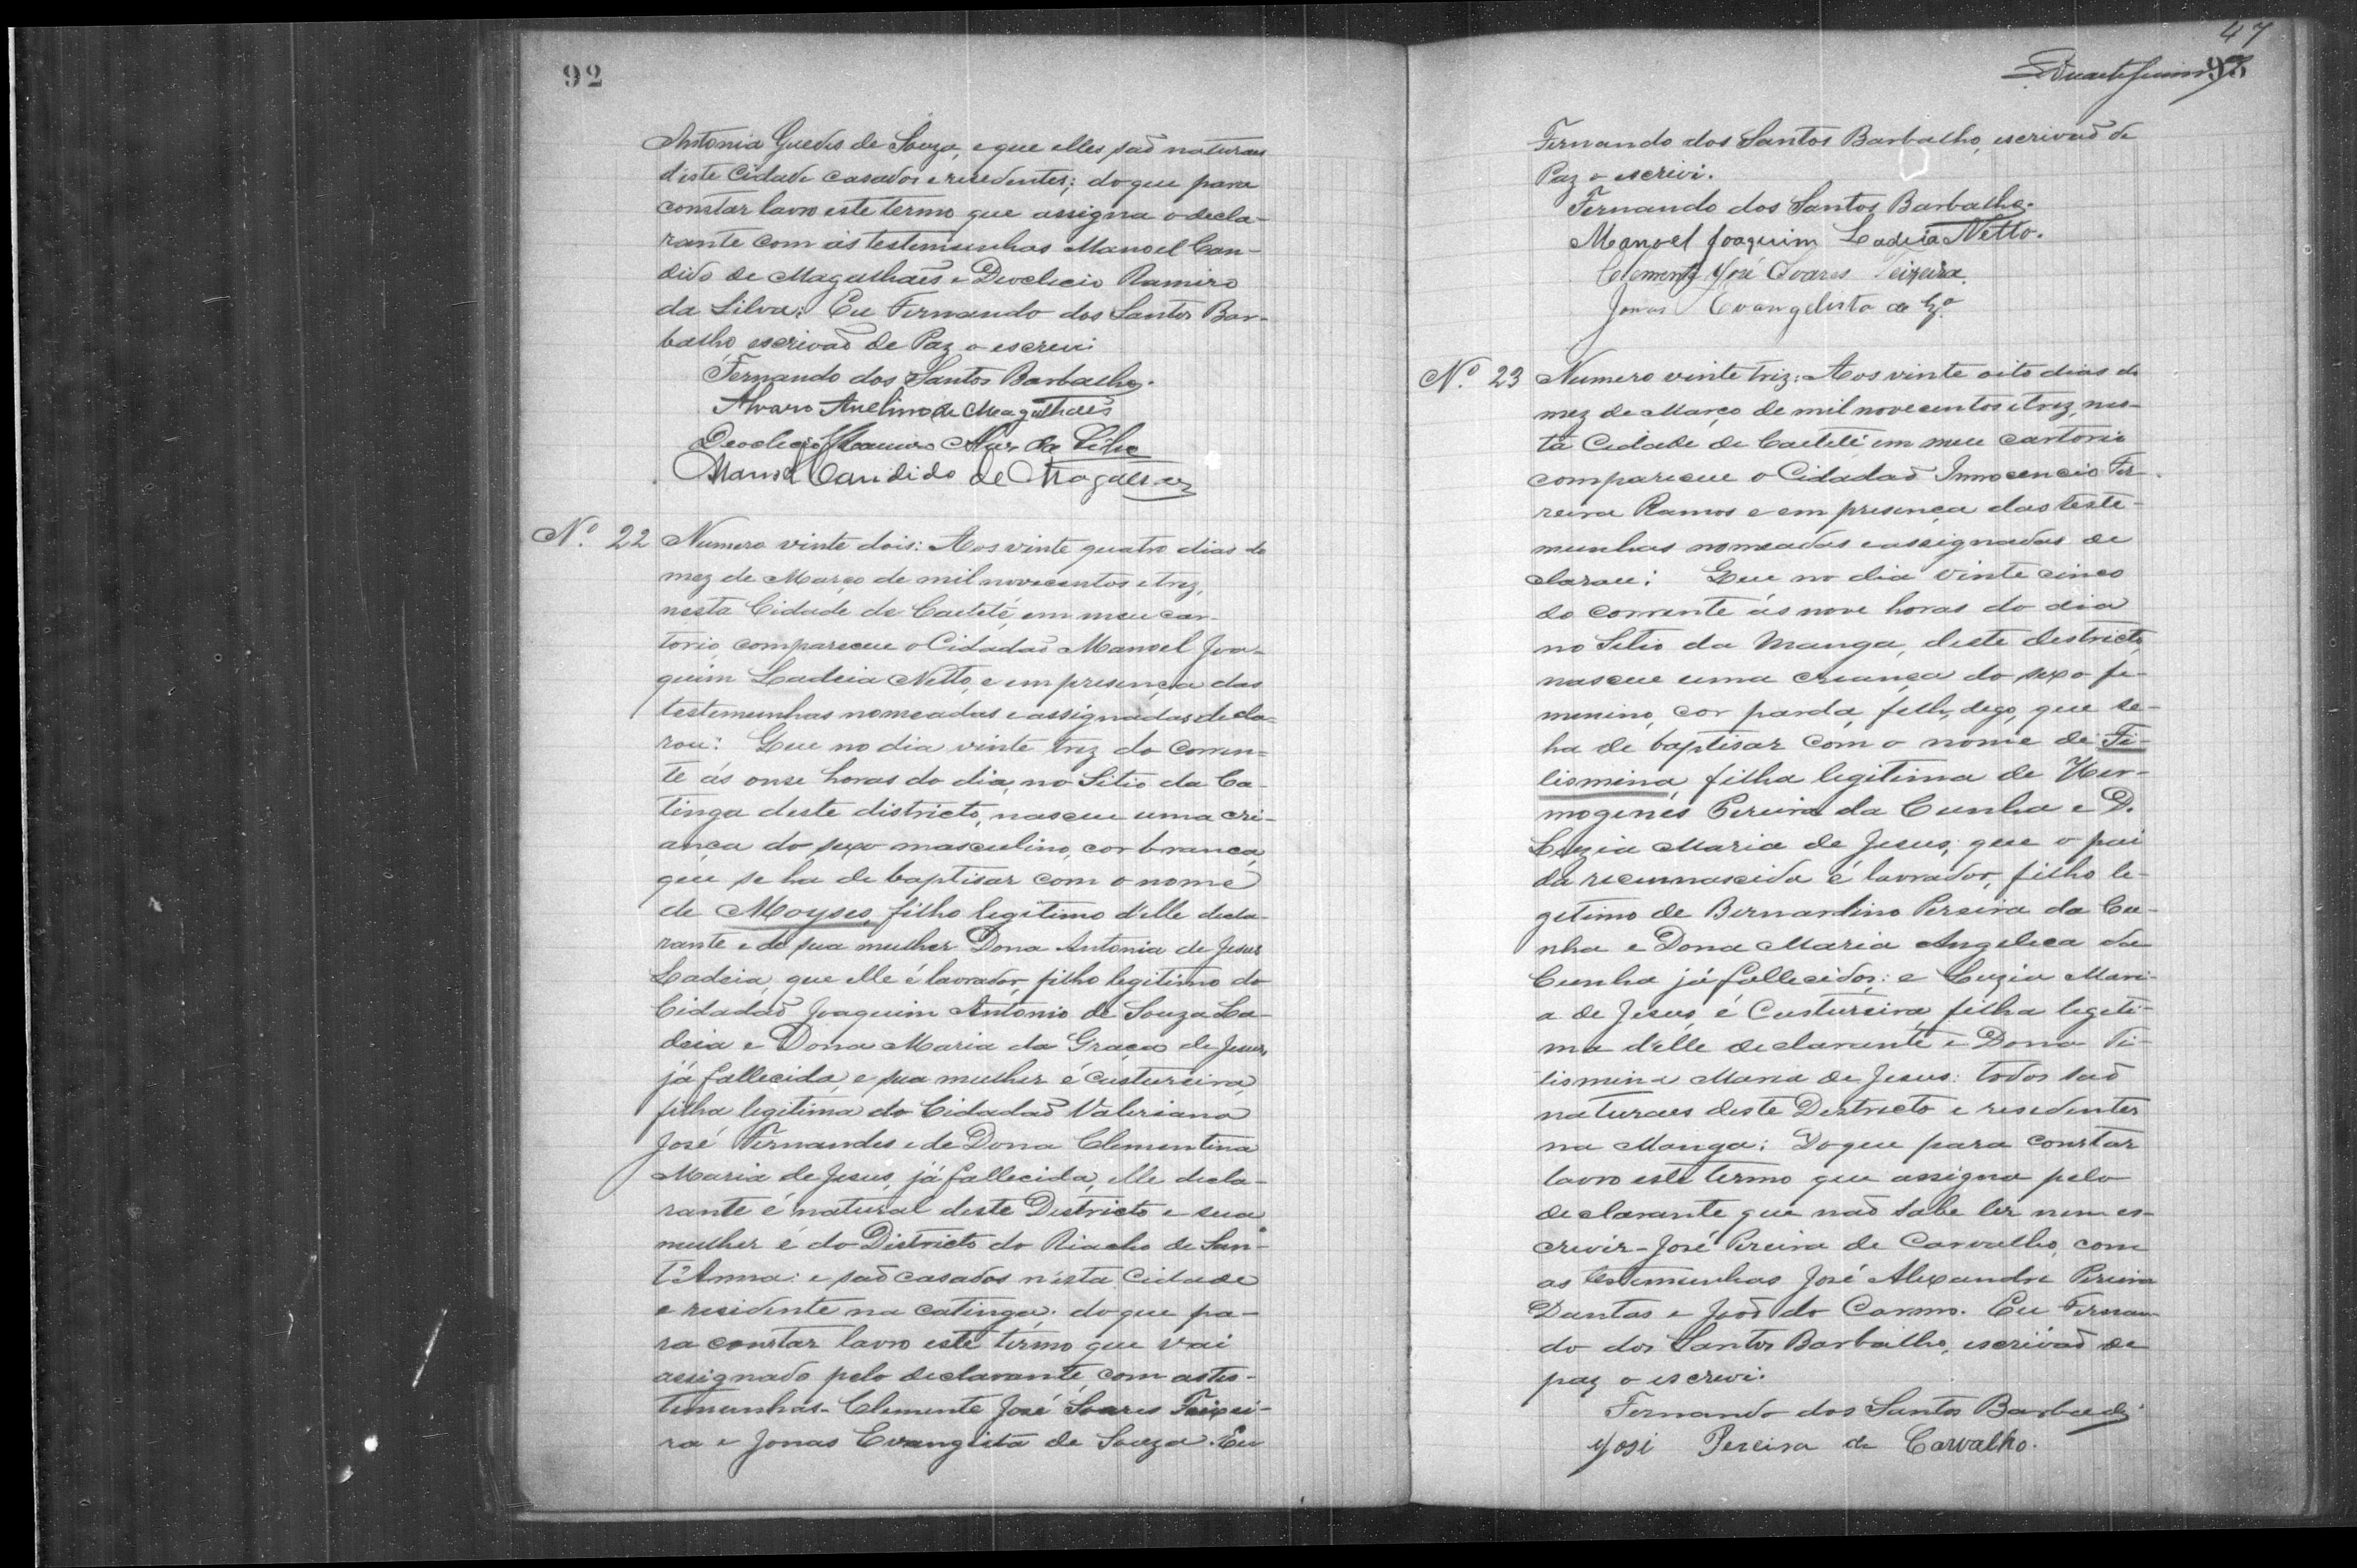 92
Antonia Guedes de Souza, e que elles saõ naturaes
d'esta Cidade casados e residentes; do que para
constar lavro este termo que assigna o decla-
rante com as testemunhas Manoel Can-
dido de Magalhaẽs e Deoclecio Ramiro
da Silva: Eu Fernando dos Santos Bar-
balho escrivaõ de Paz o escrevi
Fernando dos Santos Barbalho.
Alvaro Avelino de Magalhaẽs
Deoclecio da Silva
Manoel Candido de Magalhães
Nº 22 Numero vinte dois: Aos vinte quatro dias do
mez de Março de mil novecentos e trez,
nesta Cidade de Caeteté, em meu car-
torio, compareceu o Cidadaõ Manoel Joa-
quim Ladeia Netto, e em presença das
testemunhas nomeadas e assignadas decla-
rou: Que no dia vinte trez do corren-
te ás onze horas do dia, no Sitio da Ca-
tinga deste districto, nasceu uma cri-
ança do sexo masculino, cor branca,
que se ha de baptisar com o nome
de Moyses, filho legitimo d'elle decla-
rante e de sua mulher Dona Antonia de Jesus
Ladeia, que elle é lavrador, filho legitimo do
Cidadaõ Joaquim Antonio de Souza La-
deia e Dona Maria da Graça de Jesus,
já fallecida, e sua mulher é custureira,
filha legitima do Cidadaõ Valeriano
José Fernandes e de Dona Clementina
Maria de Jesus, já fallecida, elle decla-
rante é natural deste Districto e sua
mulher é do Districto do Riacho de San-
t'Anna: e saõ casados n'esta Cidade
e residente na catinga; do que pa-
ra constar lavro este termo que vai
assignado pelo declarante, com as tes-
temunhas - Clemente José Soares Teixei-
ra e Jonas Evanglista de Souza. Eu
47
93
Fernando dos Santos Barbalho, escrivaõ de
Paz o escrevi.
Fernando dos Santos Barbalho.
Manoel Joaquim Ladeia Netto.
Clemente José Soares Teixeira.
Jonas Evangelista de Sza
Nº 23 Numero vinte trez: Aos vinte oito dias do
mez de Março de mil novecentos e trez, nes-
ta Cidade de Caeteté em meu cartorio
compareceu o Cidadaõ Innocencio Fer-
reira Ramos e em presença das teste-
munhas nomeadas e assignadas de
clarou: Que no dia vinte cinco
do corrente ás nove horas do dia
no Sitio da Manga, deste destricto,
nasceu uma criança do sexo fe-
menino, cor parda, filh, dego, que se-
ha de baptisar com o nome de Fi-
lismina, filha legitima de Her-
mogenes Pereira da Cunha e D.
Luzia Maria de Jesus; que o pai
da recemnascida é lavrador, filho le-
gitimo de Bernardino Pereira da Cu-
nha e Dona Maria Angelica da
Cunha já fallecidos; e Luzia Mari-
a de Jesus é Custureira, filha legiti-
ma d'elle declarante e Dona Fi-
lismina Maria de Jesus: todos saõ
naturaes deste Destricto e residentes
na Manga: Do que para constar
lavro este termo que assigna pelo
declarante que naõ sabe ler nem es-
crevir - José Pereira de Carvalho, com
as testemunhas José Alexandre Pereira
Dantas e Joaõ do Carmo. Eu Fernan-
do dos Santos Barbalho, escrivaõ de
paz o escrevi.
Fernando dos Santos Barbalho
José Pereira de Carvalho.